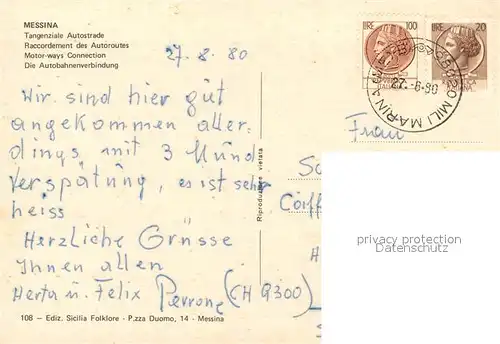 MESSINA
Tangenziale Autostrade
Raccordement des Autoroutes
Motor-ways Connection
Die Autobahnenverbindung
27.8.80
LIRE 100
LIRE 20
98020 MILI MARINA
27.-8-80
Wir sind hier gut
angekommen aller-
dings mit 3 Stund
Verspätung, es ist sehr
heiss
Herzliche Grüsse
Ihnen allen
Herta u. Felix Perrone (CH 9300)
Riproduzione vietata
Frau
privacy protection
Datenschutz
108 - Ediz. Sicilia Folklore - P.zza Duomo, 14 - Messina